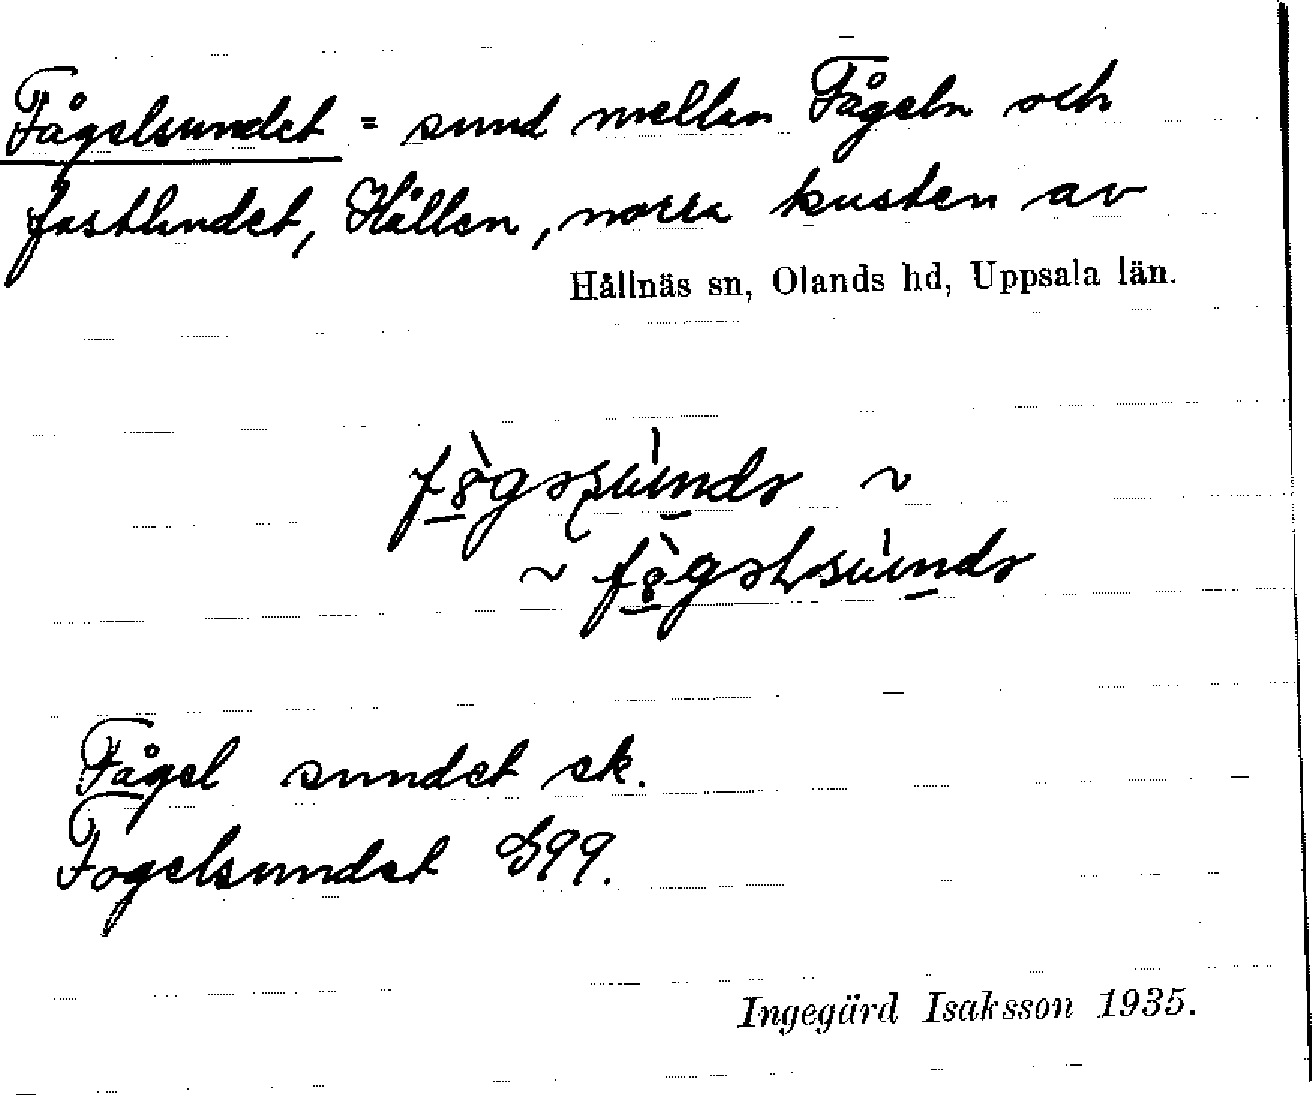 Fågelsundet = sund mellan Fågeln och
fastlandet, Hållen, norra kusten av
Hållnäs sn, Olands hd, Uppsala län.
~
~
Fågel sundet ek.
Fogelsundet G99.
Ingegärd Isaksson 1935.